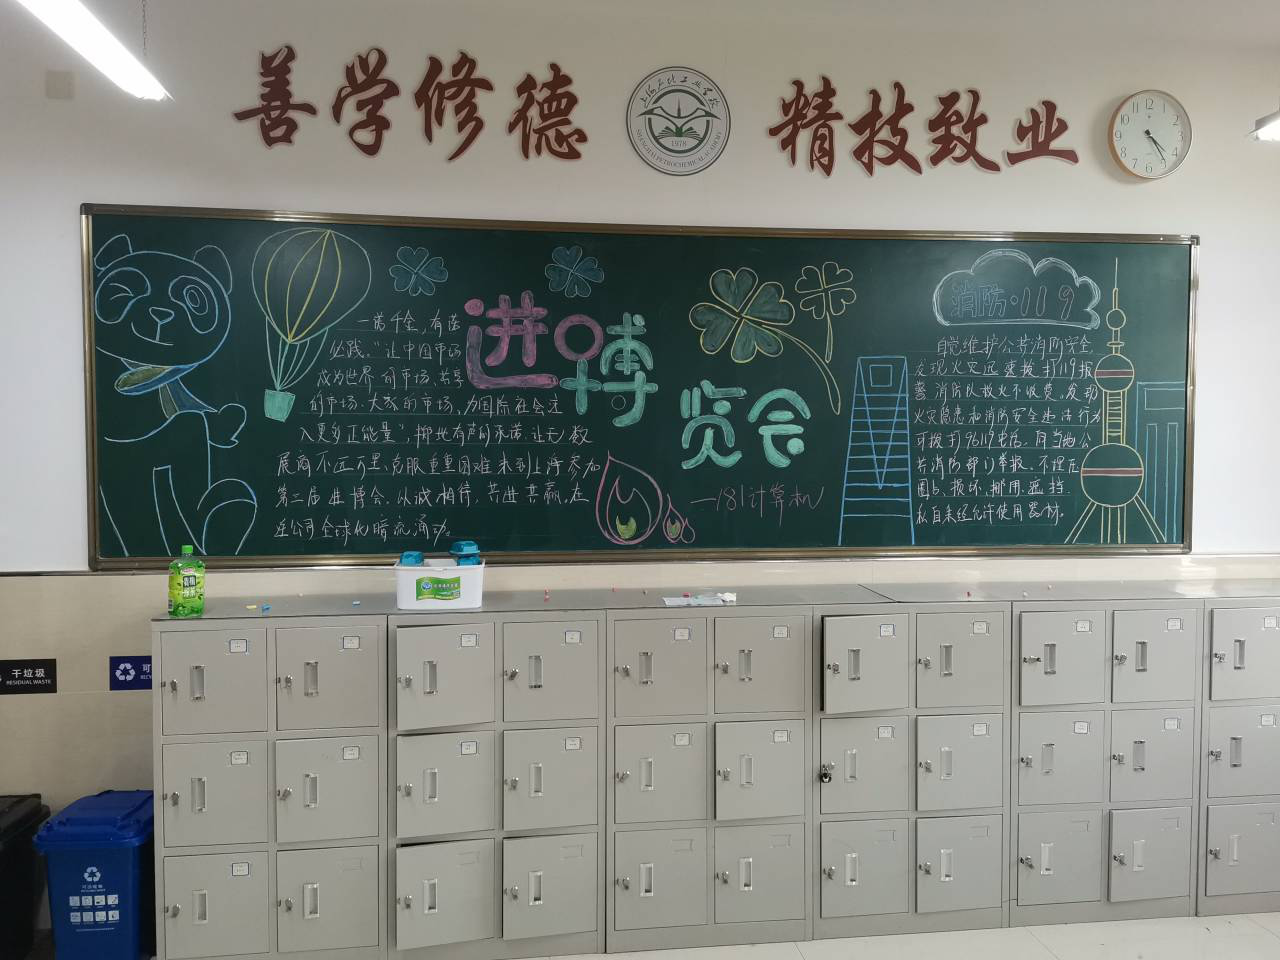 善学修德
上海石化工业学校
1978
SHANGHAI PETROCHEMICAL ACADEMY
精技致业
12
1
2
3
4
5
6
7
8
9
10
11
进口博
览会
一诺千金,有诺
必践。"让中国市场
成为世界的市场、共享
的市场、大家的市场,为国际社会注
入更多正能量",掷地有声的承诺,让无数
展商不远万里、克服重重困难来到上海参加
第二届进博会,以诚相待,共进共赢。在
逆全球化暗流涌动。
—181计算机
消防·119
自觉维护公共消防安全,
发现火灾迅速拨打119报
警,消防队救火不收费。发现
火灾隐患和消防安全违法行为
可拨打96119电话,向当地公
共消防部门举报。不埋压、
圈占、损坏、挪用、遮挡
私自未经允许使用器材。
干垃圾
RESIDUAL WASTE
可
RECYC
可回收物